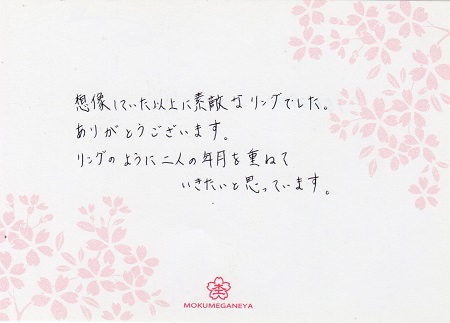 想像していた以上に素敵なリングでした。
ありがとうございます。
リングのように二人の年月を重ねて
いきたいと思っています。
MOKUMEGANEYA